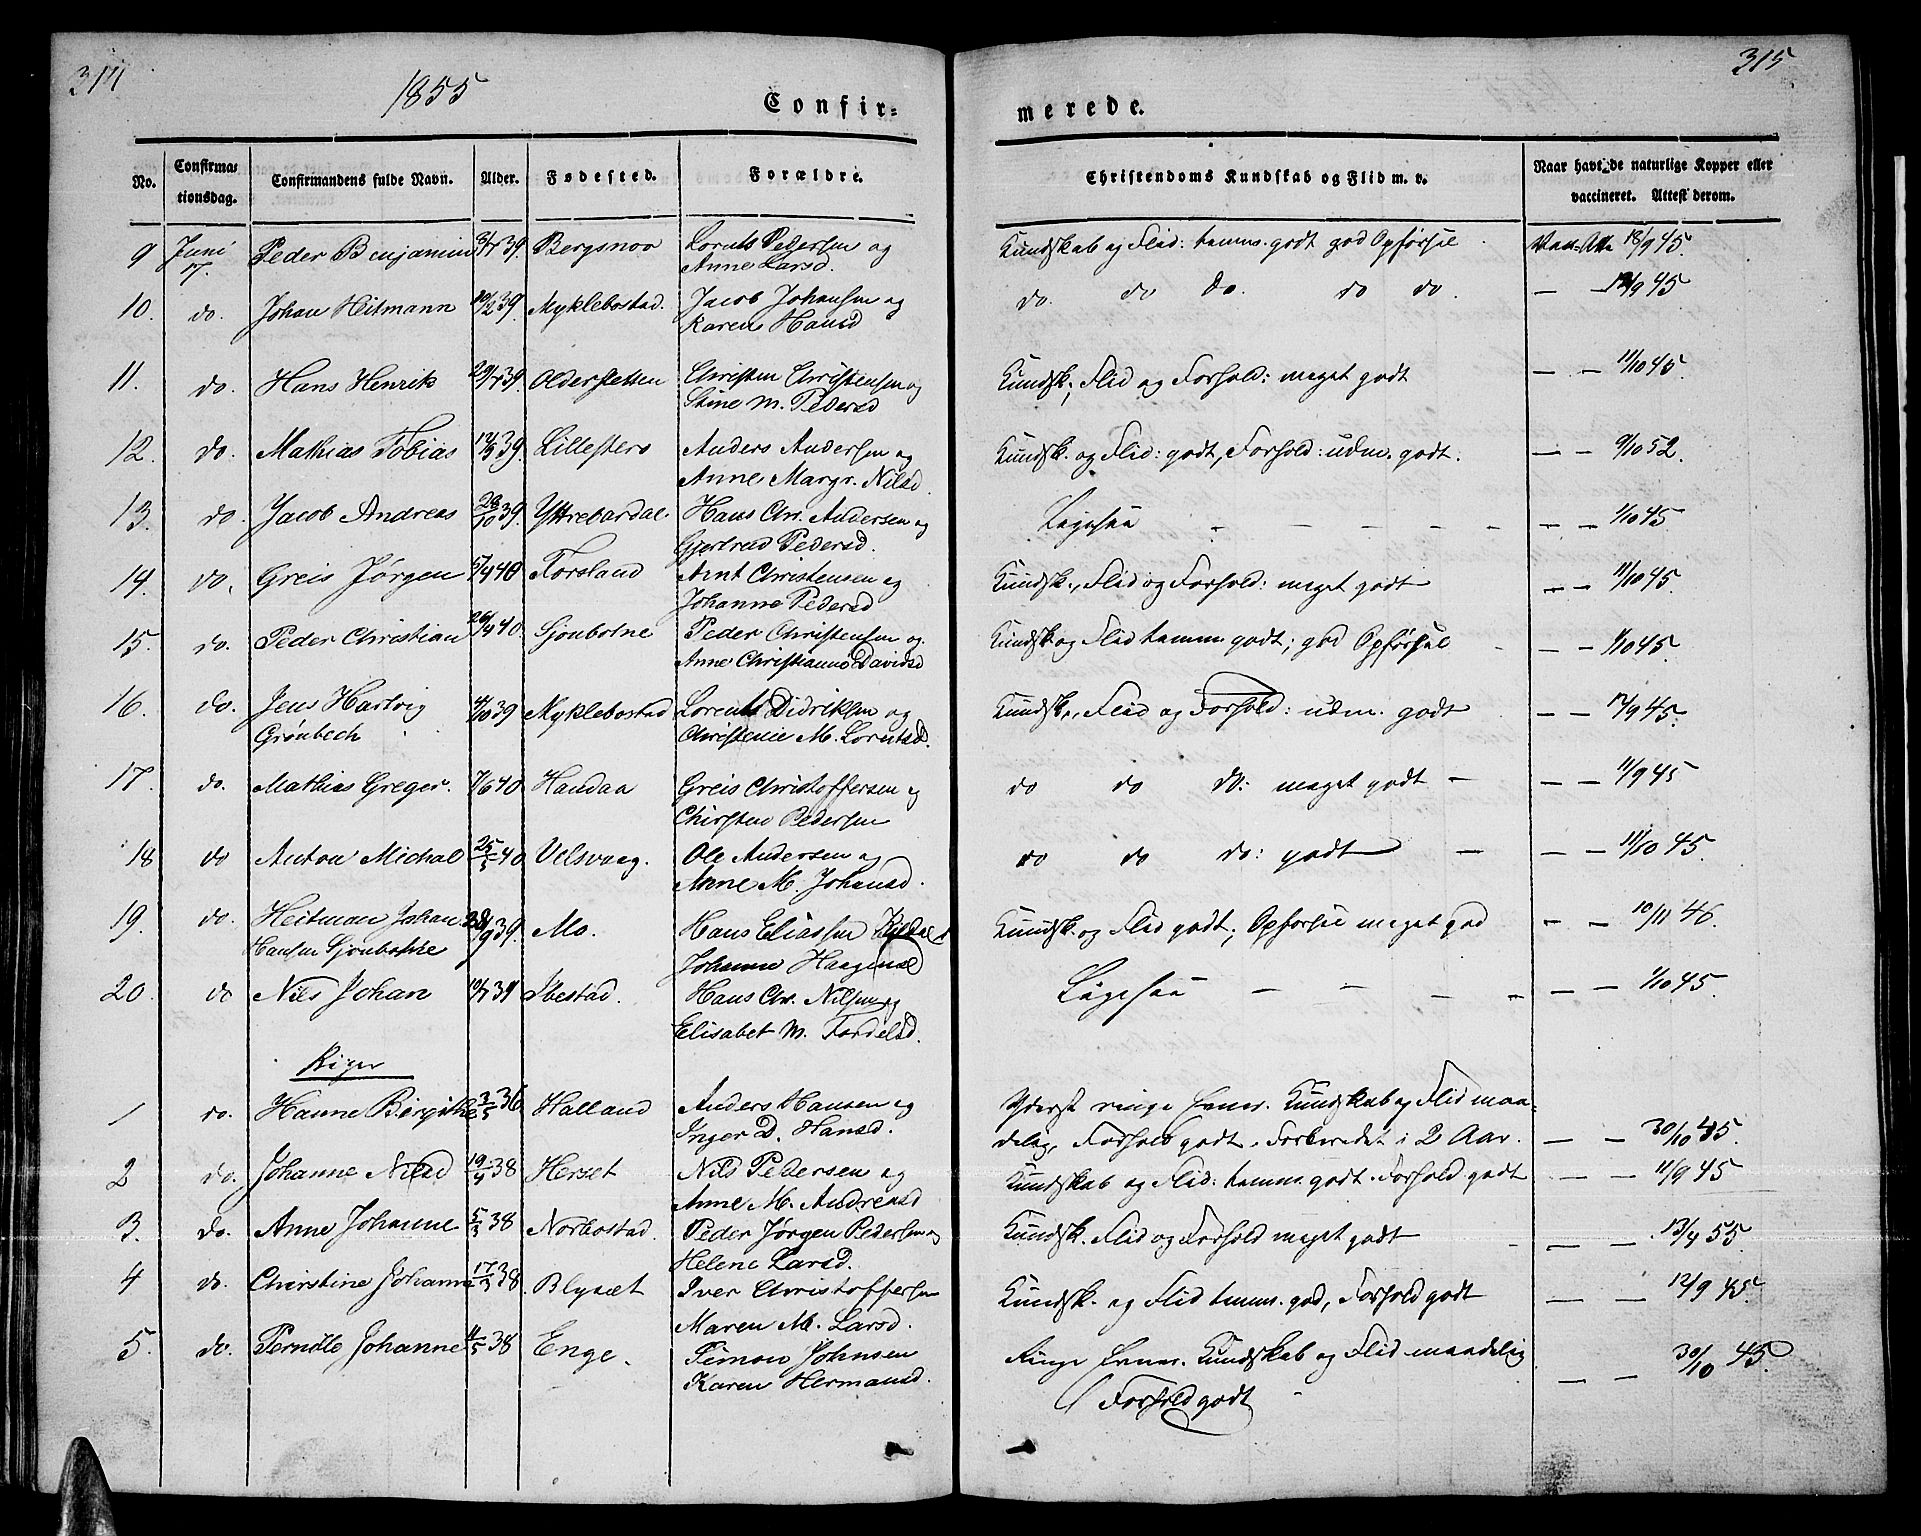 314
1855
Confir=
merede.
315
No.
Confirma=
tionsdag.
Confirmandens fulde Navn.
Alder.
Fødested.
Forældre.
Christendoms Kundskab og Flid m. v.
Naar havt de naturlige Kopper eller
vaccineret. Attest derom.
9 Juni Peder Benjamin 39. Bergsnov Lornts Pedersen og Kundskab og Flid: temm. godt god Opførsel 18/9 45.
17. Anne Larsd.
10. do. Johan Heitmann 10/2 39. Myklebostad. Jacob Johansen og do. do do. do do. — 45
Karen Hansd
11. do. Hans Henrik 39. Oldersletten Christen Christensen og Kundsk., Flid og Forhold: meget godt — — 11/10 45.
Stine M. Pedersd
12. do. Mathias Tobias 39. Lillestero Anders Andersen og Kundsk. og Flid: godt, Forhold: udm. godt. — — 9/10 52.
Anne Margr. Nilsd
13. do. Jacob Andreas 28/10 39. Yttrebardal. Hans Chr. Andersen og Ligesaa — — — — — — — 1/10 45
Gjertrud Pedersd.
14. do. Greis Jørgen 5/4 40 Forsland Arnt Christensen og Kundsk., Flid og Forhold: meget godt — — 11/10 45.
Johanne Pedersd
15. do. Peder Christian 26/4 40. Sjonbotne Peder Christensen og Kundsk og Flid temm. godt; god Opførsel — — 1/10 45.
Anne Christianne Davidsd
16. do. Jens Hartvig 39 Myklebostad Lorents Didriksen og Kundsk., Flid og Forhold: udm. godt — — 12/9 45.
Grønbech Christence M. Lorntsd.
17. do. Mathias Greger. 7/6 40. Handaa Greis Christoffersen og do do do: meget godt — — — 11/9 45
Chirsten Pedersen
18 do Anton Michal 25/5 40 Velsvaag. Ole Andersen og do do do: godt — — — 11/10 45.
Anne M. Johansd.
19. do. Heitman Johan 39. Mo. Hans Eliassen Kundsk. og Flid godt; Opførsel meget god — — 10/11 46.
Hansen Sjonbotne Johanne Haagensd
20. do Nils Johan 39 Ibestad. Hans Chr. Nilsen og Ligesaa — — — — — — 1/10 45.
Elisabet M. Fordelsd.
Piger
1 do. Hanne Birgithe 3/5 36 Halland Anders Hansen og Yderst ringe Evner. Kundskab og Flid maa=
Inger D. Hansd. delig, Forhold godt. Forberedet i 2 Aar. — — 30/10 45.
2 do. Johanne Nilsd 19/4 38 Herset Nils Pedersen og Kundskab og Flid: temm. godt. Forhold godt — — 11/9 45
Anne M. Andreasd
3. do. Anne Johanne 5/3 38 Norbostad. Peder Jørgen Pedersen og Kundsk. Flid og Forhold meget godt — — 13/4 55.
Helene Larsd.
4 do. Chirstine Johanne 17/3 38 Blysæt Iver Christoffersen Kundsk. og Flid temm. god, Forhold godt — — 12/9 45.
Maren M. Larsd.
5. do. Perndlo Johanne 38 Enge. Pemon Johnsen Ringe Evner. Kundskab og Flid maadelig — — 30/10 45.
Karen Hermansd. Forhold godt